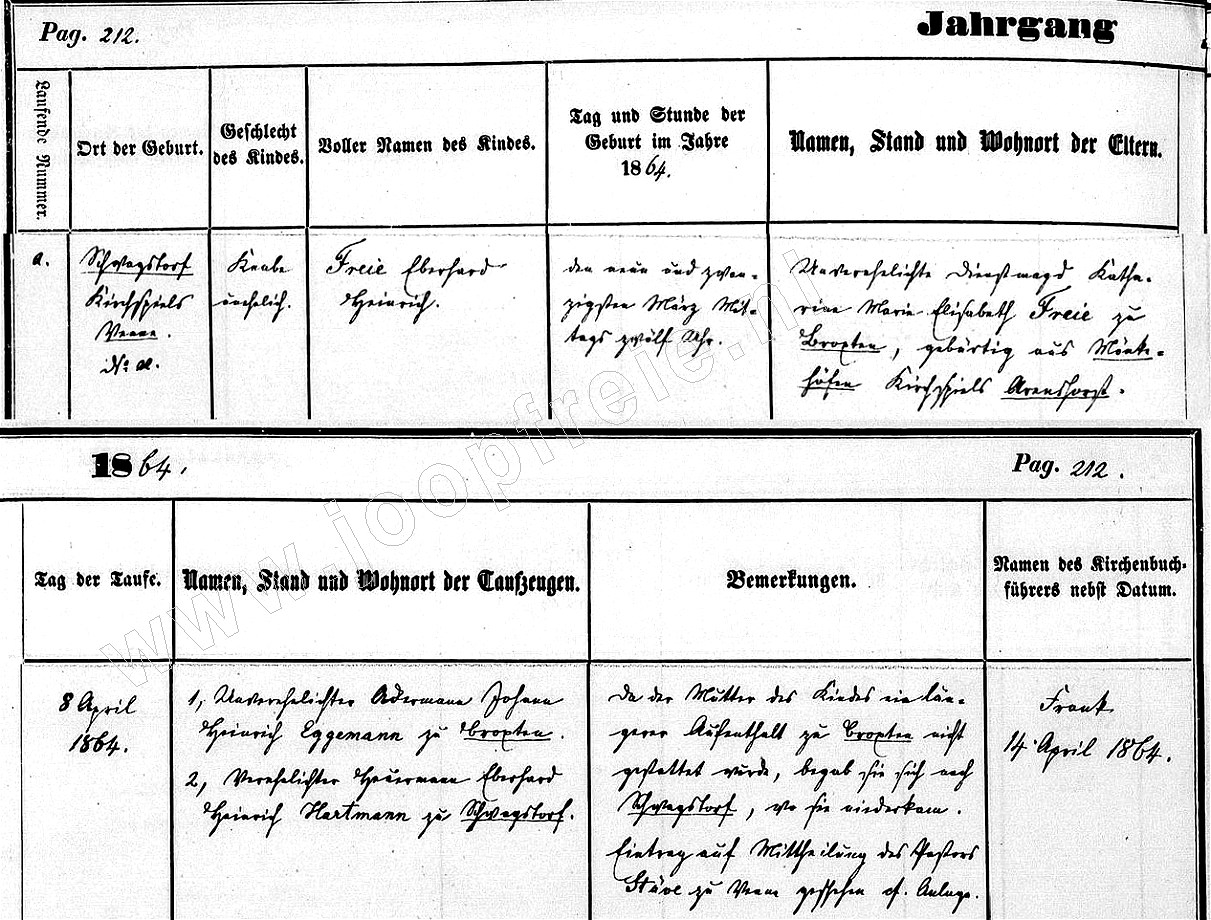 Pag. 212.
Jahrgang
Laufende Nummer.
Ort der Geburt.
Geschlecht
des Kindes.
Voller Namen des Kindes.
Tag und Stunde der
Geburt im Jahre
1864.
Namen, Stand und Wohnort der Eltern.
a.
Schwagstorf
Kirchspiels
Venne.
Knabe
unehelich.
Freie Eberhard
Heinrich.
den neun und zwan-
zigsten März Mit-
tags zwölf Uhr.
Unverehelichte Dienstmagd Katha-
rine Marie Elisabeth Freie zu
Broxten, gebürtig aus Mönke-
höfen Kirchspiels Arenshorst.
1864.
Pag. 212.
Tag der Taufe.
Namen, Stand und Wohnort der Taufzeugen.
Bemerkungen.
Namen des Kirchenbuch-
führers nebst Datum.
8 April
1864.
1, Unverehelichter Ackermann Johann
Heinrich Eggemann zu Broxten.
2, Verehelichter Heuermann Eberhard
Heinrich Hartmann zu Schwagstorf.
Da der Mutter des Kindes ein län-
gerer Aufenthalt zu Broxten nicht
gestattet wurde, begab sie sich nach
Schwagstorf, wo sie niederkam.
Eintrag auf Mittheilung des Pastors
Stüve zu Venne geschehen cf. Anlage.
Frank
14 April 1864.
www.joopfreie.nl